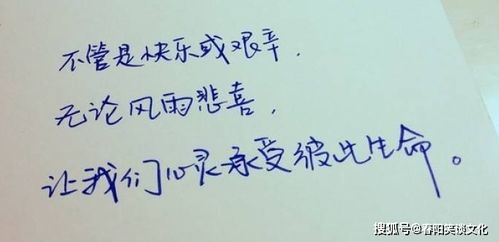 不管是快乐或艰辛.
无论风雨悲喜,
让我们心灵承受彼此生命。
搜狐号@春阳笑谈文化